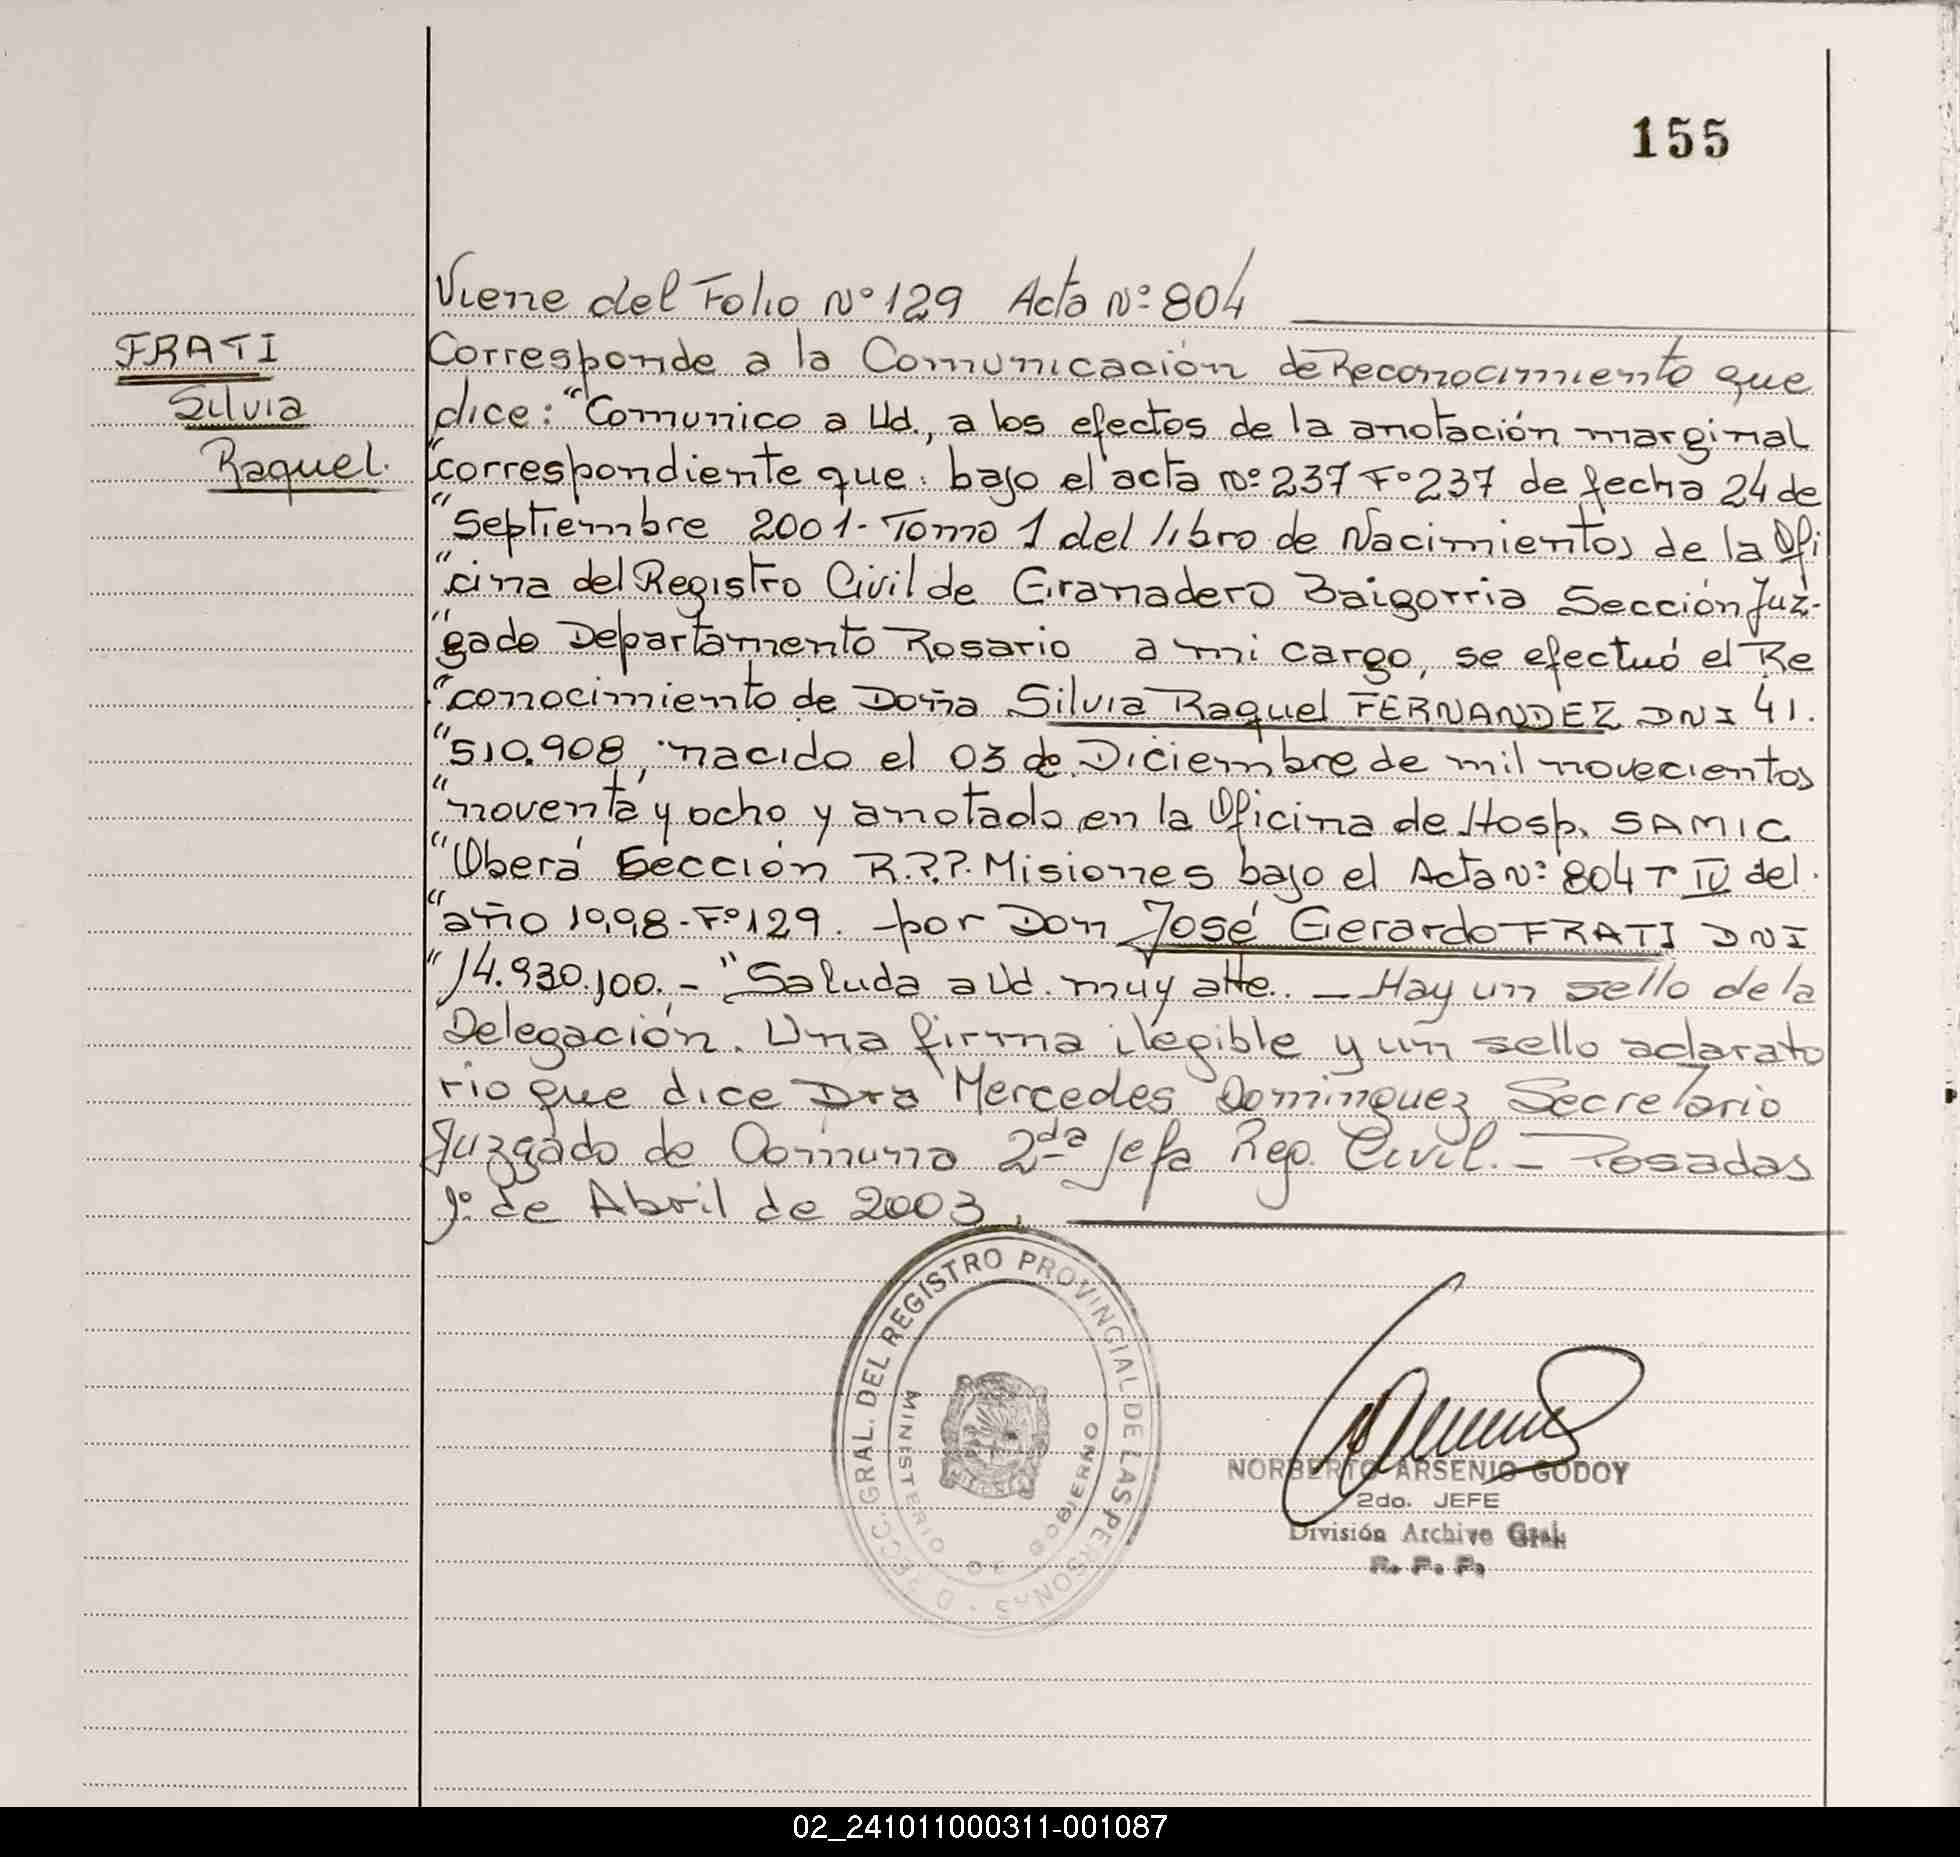 155
Viene del Folio Nº 129 Acta Nº 804
FRATI
Silvia
Raquel.
Corresponde a la Comunicación de Reconocimiento que
dice: "Comunico a Ud., a los efectos de la anotación marginal
"correspondiente que: bajo el acta nº 237 Fº 237 de fecha 24 de
"Septiembre 2001- Tomo 1 del libro de Nacimientos de la Ofi
"cina del Registro Civil de Granadero Baigorria Sección Juz-
"gado Departamento Rosario a mi cargo, se efectuó el Re
"conocimiento de Doña Silvia Raquel FERNANDEZ DNI 41.
"510.908, nacido el 03 de Diciembre de mil novecientos
"noventa y ocho y anotado en la Oficina de Hosp. SAMIC
"Oberá Sección R.P.P. Misiones bajo el Acta Nº 804 T IV del
"año 1998- Fº 129. por Don José Gerardo FRATI DNI
"14.930.100.- "Saluda a Ud. muy atte. - Hay un sello de la
Delegación. Una firma ilegible y un sello aclarato
rio que dice Dra Mercedes Dominguez Secretario
Juzgado de Comuna 2da Jefa Reg. Civil. - Posadas
1º de Abril de 2003.
DIRECC. GRAL. DEL REGISTRO PROVINCIAL DE LAS PERSONAS
MINISTERIO DE GOBIERNO
NORBERTO ARSENIO GODOY
2do. JEFE
División Archivo Gral.
R. P. P.
02_241011000311-001087